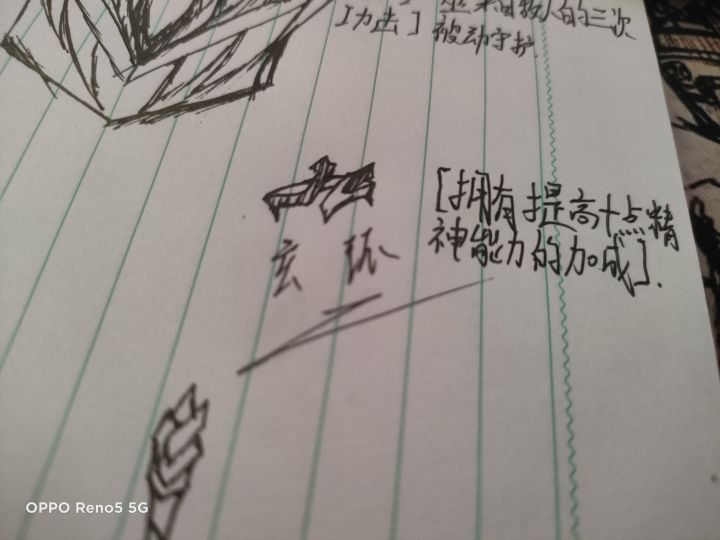 的三次
[功击] 被动守护
[拥有提高十点精
神能力的加成].
玄环
OPPO Reno5 5G